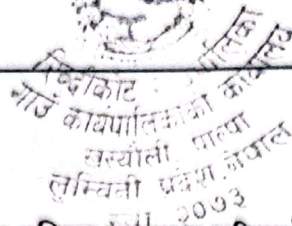 रिब्दीकोट पालिका
गाउँ कार्यपालिकाको कार्यालय
खस्यौली, पाल्पा
लुम्बिनी प्रदेश, नेपाल
२०७३